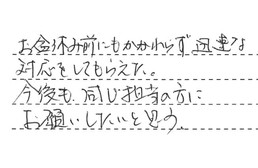 お盆休み前にもかかわらず迅速な
対応をしてもらえた。
今後も、同じ担当の方に
お願いしたいと思う。